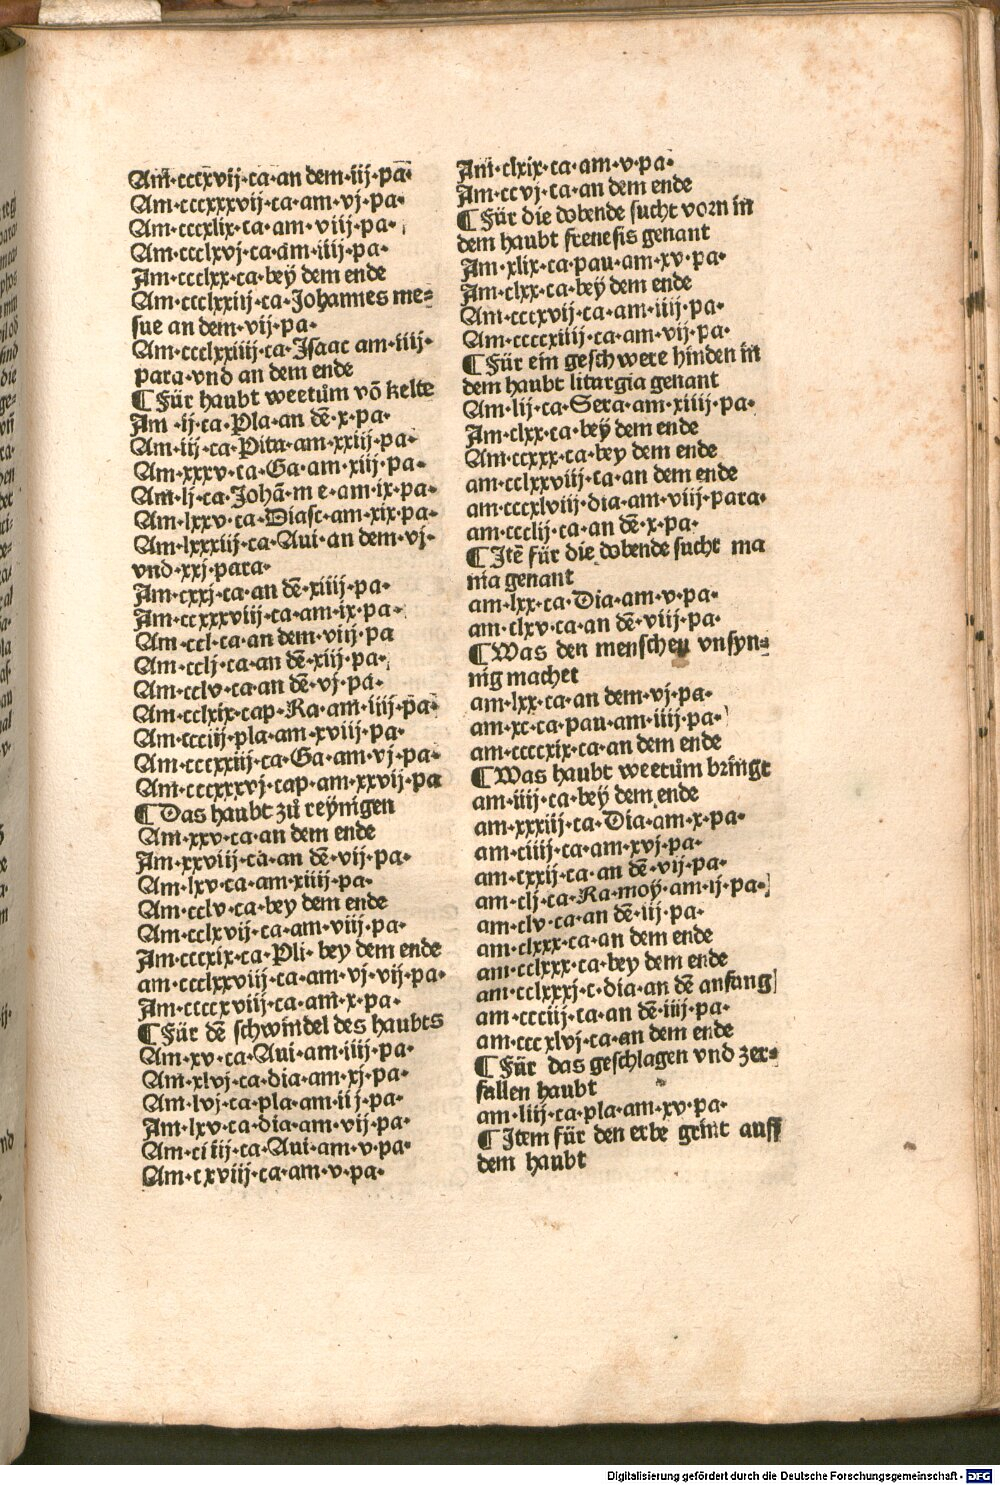 Am·cccxvij·ca·an dem·iij·pa·
Am·cccxxxvij·ca·am·vj·pa·
Am·cccxlix·ca·am·viij·pa·
Am·ccclxvj·ca·am·iiij·pa·
Am·ccclxx·ca·beÿ dem ende
Am·ccclxxiij·ca·Johannes me=
sue an dem·vij·pa·
Am·ccclxxiiij·ca·Isaac am·iiij·
para·vnd an dem ende
¶ Für haubt weetům võ kelte
Am·ij·ca·Pla·an dē·x·pa·
Am·iij·ca·Pita·am·xxiij·pa·
Am·xxxv·ca·Ga·am·xiij·pa·
Am·lj·ca·Johā·m e·am·ix·pa·
Am·lxxv·ca·Diasc·am·xix·pa·
Am·lxxxiij·ca·Aui·an dem·vj·
vnd·xxj·para·
Am·cxxj·ca·an dē·xiiij·pa·
Am·ccxxxviij·ca·am·ix·pa·
Am·ccl·ca·an dem·viij·pa
Am·cclj·ca·an dē·xiij·pa·
Am·cclv·ca·an dē·vj·pa·
Am·cclxix·cap·Ra·am·iiij·pa·
Am·ccciij·pla·am·xviij·pa·
Am·cccxxiij·ca·Ga·am·vj·pa·
Am·cccxxxvj·cap·am·xxvij·pa
¶ Das haubt zů reÿnigen
Am·xxv·ca·an dem ende
Am·xxviij·ca·an dē·vij·pa·
Am·lxv·ca·am·xiiij·pa·
Am·cclv·ca·bey dem ende
Am·cclxvij·ca·am·viij·pa·
Am·cccxix·ca·Pli·bey dem ende
am·ccclxxviij·ca·am·vj·vij·pa·
Am·ccccxviij·ca·am·x·pa·
¶ Für dē schwindel des haubts
Am·xv·ca·Aui·am·iiij·pa·
Am·xlvj·ca·dia·am·xj·pa·
Am·lvj·ca·pla·am·iij·pa·
Am·lxv·ca·dia·am·vij·pa·
Am·ciiij·ca·Aui·am·v·pa·
Am·cxviij·ca·am·v·pa·
Am·clxix·ca·am·v·pa·
Am·ccvj·ca·an dem ende
¶ Für die dobende sucht vorn in
dem haubt frenesis genant
Am·xlix·ca·pau·am·xv·pa·
Am·clxx·ca·beÿ dem ende
Am·cccxvij·ca·am·iiij·pa·
Am·ccccxiiij·ca·am·vij·pa·
¶ Für ein geschwere hinden in
dem haubt liturgia genant
Am·lij·ca·Sera·am·xiiij·pa·
Am·clxx·ca·beÿ dem ende
Am·ccxxx·ca·bey dem ende
am·cclxxviij·ca·an dem ende
am·cccxlviij·dia·am·viij·para·
am·ccclij·ca·an dē·x·pa·
¶ Itē für die dobende sucht ma
nia genant
am·lxx·ca·Dia·am·v·pa·
am·clxv·ca·an dē·viij·pa·
¶ Was den menschen vnsyn=
nig machet
am·lxx·ca·an dem·vj·pa·
am·xc·ca·pau·am·iiij·pa·
am·ccccxix·ca·an dem ende
¶ Was haubt weetům bringt
am·iiij·ca·beÿ dem ende
am·xxxiij·ca·Dia·am·x·pa·
am·ciiij·ca·am·xvj·pa·
am·cxxij·ca·an dē·vij·pa·
am·clj·ca·Ra·moÿ·am·ij·pa·
am·clv·ca·an dē·iij·pa·
am·clxxx·ca·an dem ende
am·cclxxx·ca·bey dem ende
am·cclxxxj·c·dia·an dē anfang
am·ccciij·ca·an dē·iiij·pa·
am·cccxlvj·ca·an dem ende
¶ Für das geschlagen vnd zer=
fallen haubt
am·liij·ca·pla·am·xv·pa·
¶ Item für den erbe grint auff
dem haubt
Digitalisierung gefördert durch die Deutsche Forschungsgemeinschaft - DFG